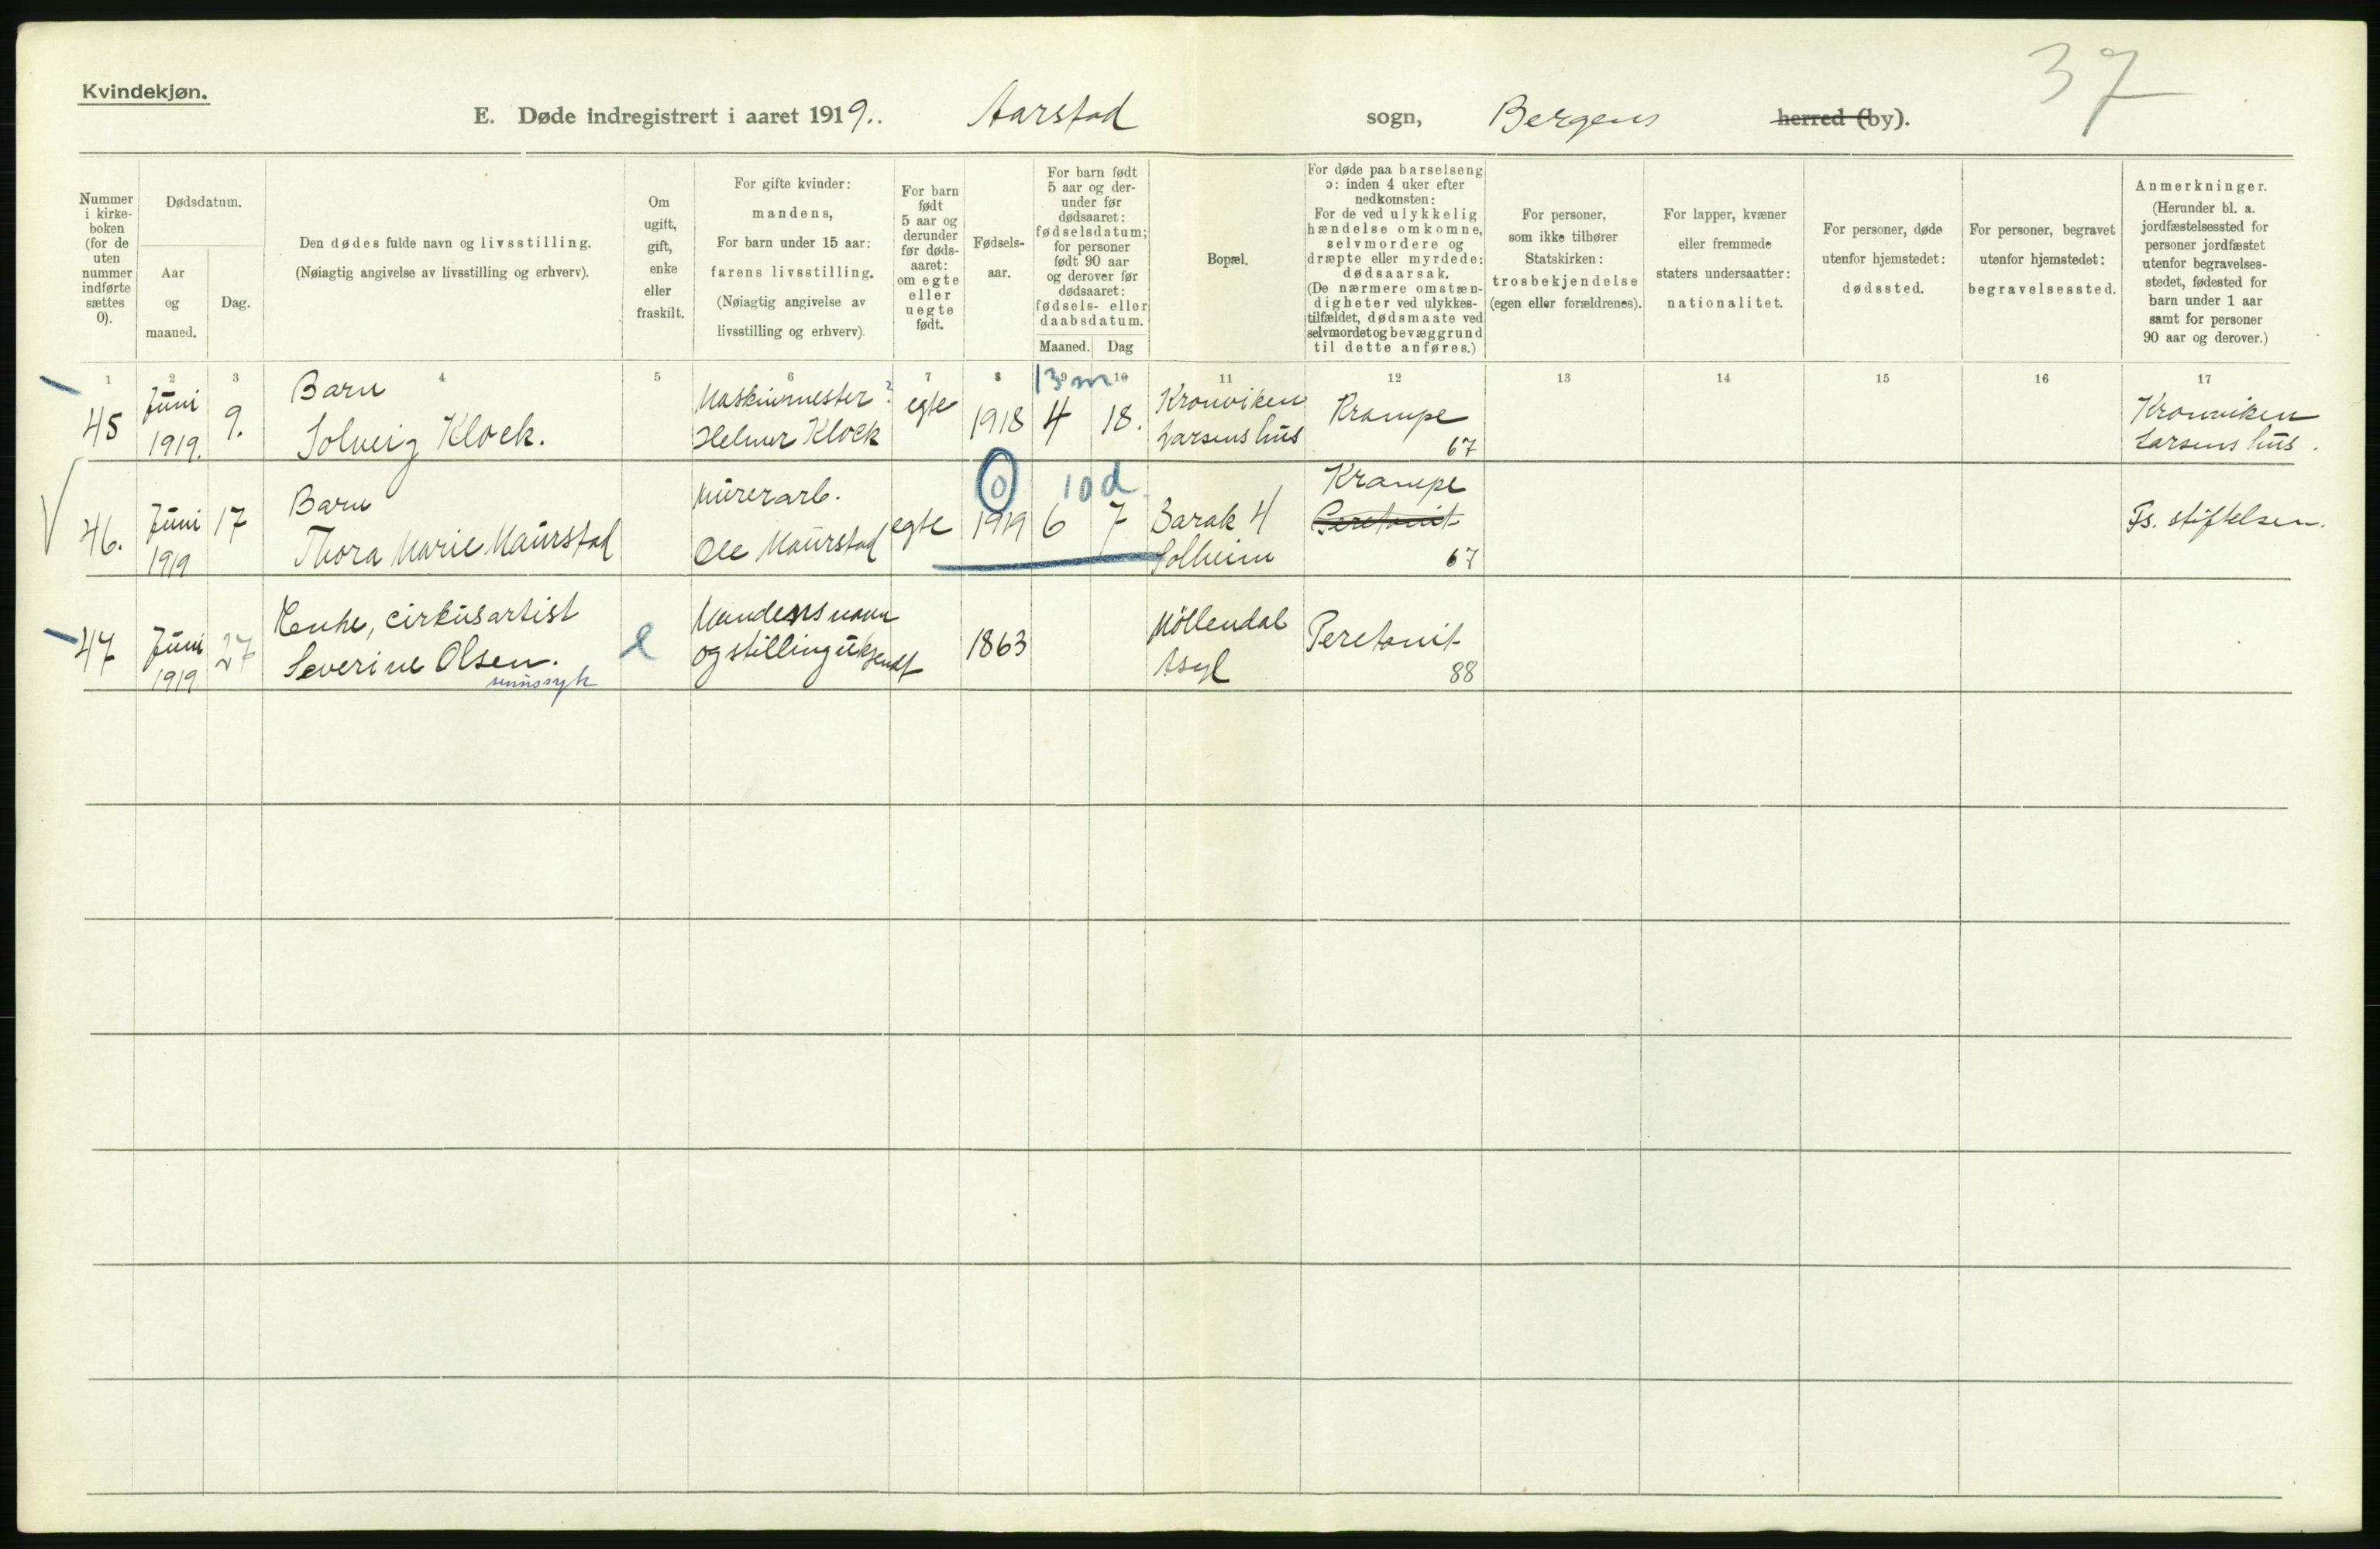 37
Kvindekjøn.
E. Døde indregistrert i aaret 1919.. Aarstad sogn, Bergens herred (by).
Nummer
i kirke-
boken
(for de
uten
nummer
indførte
sættes
0).
Dødsdatum.
Aar
og
maaned.
Dag.
Den dødes fulde navn og livsstilling.
(Nøiagtig angivelse av livsstilling og erhverv).
Om
ugift,
gift,
enke
eller
fraskilt.
For gifte kvinder:
mandens,
For barn under 15 aar:
farens livsstilling.
(Nøiagtig angivelse av
livsstilling og erhverv).
For barn
født
5 aar og
derunder
før døds-
aaret:
om egte
eller
uegte
født.
Fødsels-
aar.
For barn født
5 aar og der-
under før
dødsaaret:
fødselsdatum;
for personer
født 90 aar
og derover før
dødsaaret:
fødsels- eller
daabsdatum.
Maaned. Dag
Bopæl.
For døde paa barselseng
ɔ: inden 4 uker efter
nedkomsten:
For de ved ulykkelig
hændelse omkomne,
selvmordere og
dræpte eller myrdede:
dødsaarsak.
(De nærmere omstæn-
digheter ved ulykkes-
tilfældet, dødsmaate ved
selvmordet og bevæggrund
til dette anføres.)
For personer,
som ikke tilhører
Statskirken:
trosbekjendelse
(egen eller forældrenes).
For lapper, kvæner
eller fremmede
staters undersaatter:
nationalitet.
For personer, døde
utenfor hjemstedet:
dødssted.
For personer, begravet
utenfor hjemstedet:
begravelsessted.
Anmerkninger.
(Herunder bl. a.
jordfæstelsessted for
personer jordfæstet
utenfor begravelses-
stedet, fødested for
barn under 1 aar
samt for personer
90 aar og derover.)
1 2 3 4 5 6 7 8 9 10 11 12 13 14 15 16 17
13 m
45 Juni 9. Barn Maskinmester? egte 1918 4 18. Kronviken Krampe Kronviken
1919. Solveig Klock. Helmer Klock Larsens hus 67 Larsens hus.
0 10 d.
46. Juni 17 Barn Murerarb. egte 1919 6 7 Barak 4 Krampe Fs. stiftelsen.
Peretonit
1919 Thora Marie Maurstad Ole Maurstad Solheim 67
47 Juni 27 Enke, cirkusartist e Mandens navn 1863 Möllendal Peretonit
1919. Severine Olsen. og stilling ukjendt Asyl 88
sinnssyk